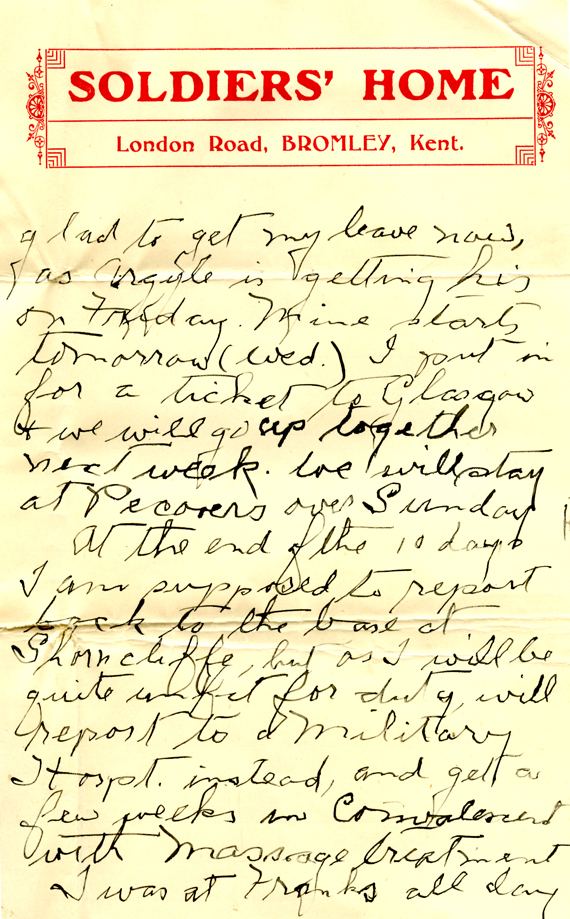 SOLDIERS' HOME
London Road, BROMLEY, Kent.
glad to get my leave now,
as Argyle is getting his
on Friday. Mine starts
tomorrow (Wed.) I put in
for a ticket to Glasgow
& we will go up together
next week. We will stay
at Pecovers over Sunday
At the end of the 10 days
I am supposed to report
back to the base at
Shorncliffe, but as I will be
quite unfit for duty, will
report to a Military
Hospt. instead, and get a
few weeks in Convalescent
with Massage treatment
I was at Franks all day